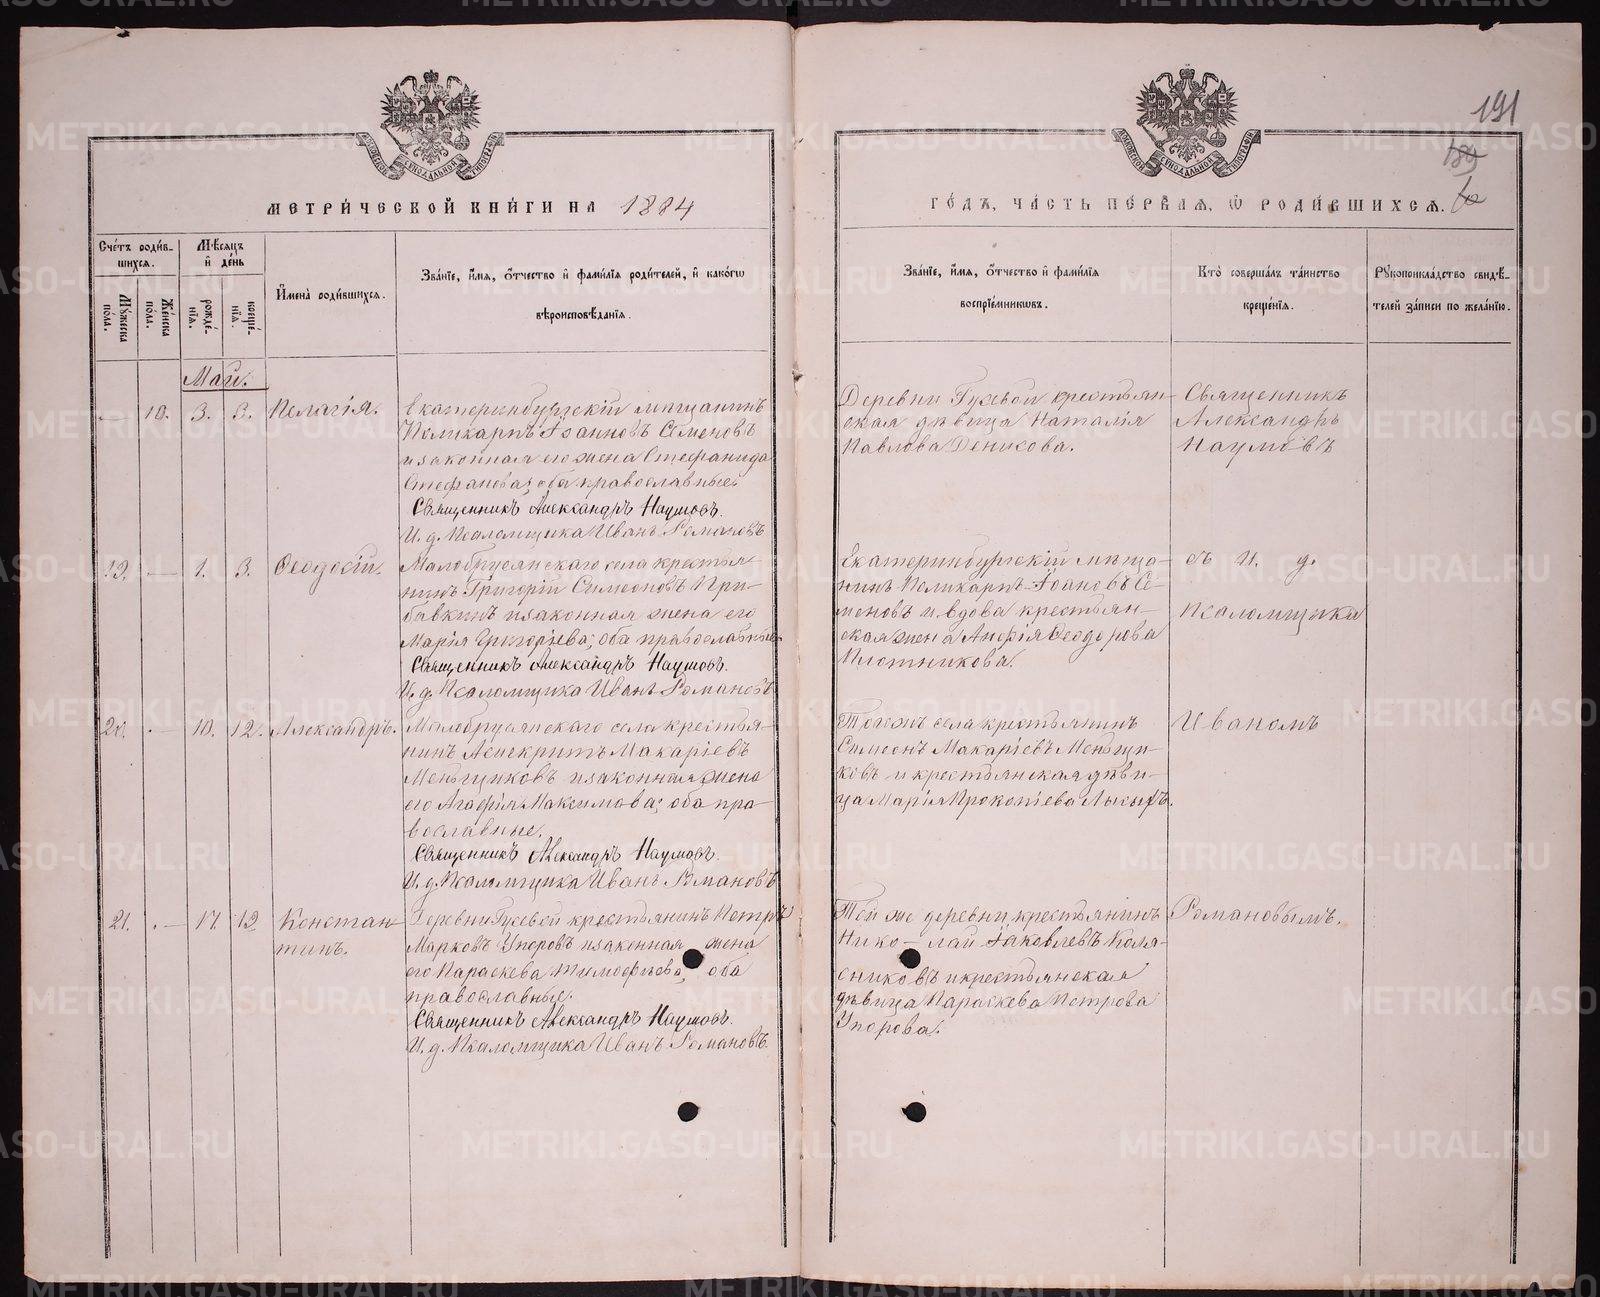 191
189
МЕТРИ́ЧЕСКОЙ КНИ́ГИ НА 1884
ГО́ДЪ, ЧА́СТЬ ПЕ́РВАЯ, Ѡ РОДИ́ВШИХСЯ.
Сче́тъ роди́в-
шихся.
Мꙋжеска по́ла.
Же́нска по́ла.
Мѣ́сяцъ и҆ де́нь
рожде́-
нїя.
креще́-
нїя.
И҆мена̀ роди́вшихся.
Зва́нїе, и҆́мя, ѻ҆́тчество и҆ фами́лїя роди́телей, и҆ како́гѡ
вѣроисповѣ́данїя.
Зва́нїе, и҆́мя, ѻ҆́тчество и҆ фами́лїя
воспрїе́мникѡвъ.
Кто̀ соверша́лъ та́инство
креще́нїя.
Рꙋкоприкла́дство свидѣ́-
телей за́писи по жела́нїю.
Май.
10. 3. 3. Пелагія.
Екатеринбургскій мѣщанинъ
Поликарпъ Іоанновъ Семеновъ
и законная его жена Стефанида
Стефанова; оба православные.
Священникъ Александръ Наумовъ.
И. д. Псаломщика Иванъ Романовъ
Деревни Гусевой крестьян-
ская дѣвица Наталія
Павлова Денисова.
Священникъ
Александръ
Наумовъ
19. — 1. 3. Ѳеодосій.
Малобрусянскаго села крестья-
нинъ Григорій Симеоновъ При-
бавкинъ и законная жена его
Марія Григоріева; оба православные
Священникъ Александръ Наумовъ.
И. д. Псаломщика Иванъ Романовъ
Екатеринбургскій мѣща-
нинъ Поликарпъ Іоановъ Се-
меновъ и вдова крестьян-
ская жена Анфія Ѳеодорова
Плотникова.
съ И. д.
Псаломщика
20. — 10. 12. Александръ.
Малобрусянскаго села крестья-
нинъ Асигкритъ Макаріевъ
Меньщиковъ и законная жена
его Агафія Максимова; оба пра-
вославные.
Священникъ Александръ Наумовъ.
И. д. Псаломщика Иванъ Романовъ
Тогожъ села крестьянинъ
Симеонъ Макаріевъ Меньщи-
ковъ и крестьянская дѣви-
ца Марія Прокопіева
Иваномъ
21. — 17. 19. Констан-
тинъ.
Деревни Гусевой крестьянинъ Петръ
Марковъ Упоровъ и законная жена
его Параскева Тимофѣева; оба
православные.
Священникъ Александръ Наумовъ.
И. д. Псаломщика Иванъ Романовъ.
Той же деревни крестьянинъ
Нико — лай Іаковлевъ Коля-
сниковъ и крестьянская
дѣвица Параскева Петрова
Упорова.
Романовымъ.
METRIKI.GASO-URAL.RU